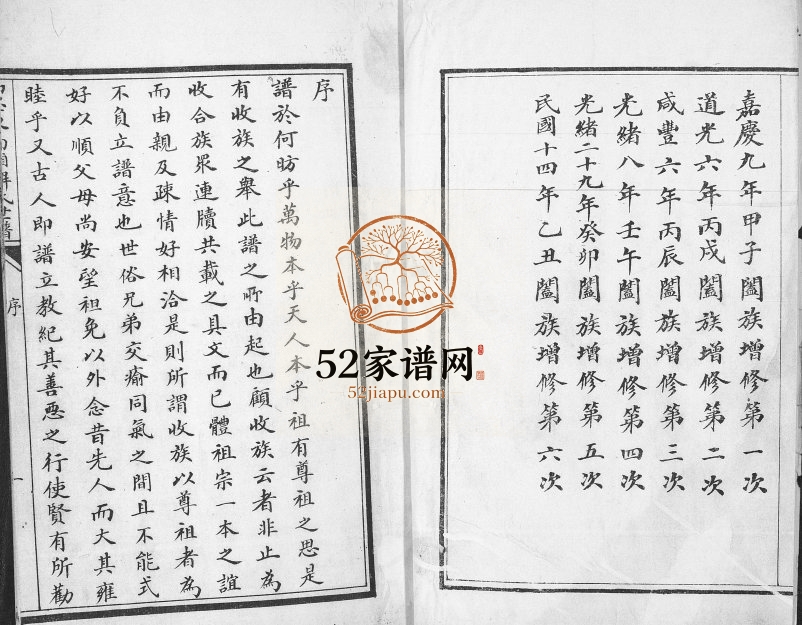 嘉慶九年甲子闔族增修第一次
道光六年丙戌闔族增修第二次
咸豐六年丙辰闔族增修第三次
光緒八年壬午闔族增修第四次
光緒二十九年癸卯闔族增修第五次
民國十四年乙丑闔族增修第六次
序
譜於何昉乎萬物本乎天人本乎祖有尊祖之思是
有收族之舉此譜之所由起也顧收族云者非止為
收合族眾連牘共載之具文而已體祖宗一本之誼
而由親及疎情好相洽是則所謂收族以尊祖者為
不負立譜意也世俗兄弟交瘉同氣之間且不能式
好以順父母尚安望祖免以外念昔先人而大其雍
睦乎又古人即譜立教紀其善惡之行使賢有所勸
氏世譜
序
一
52家谱网
52jiapu.com